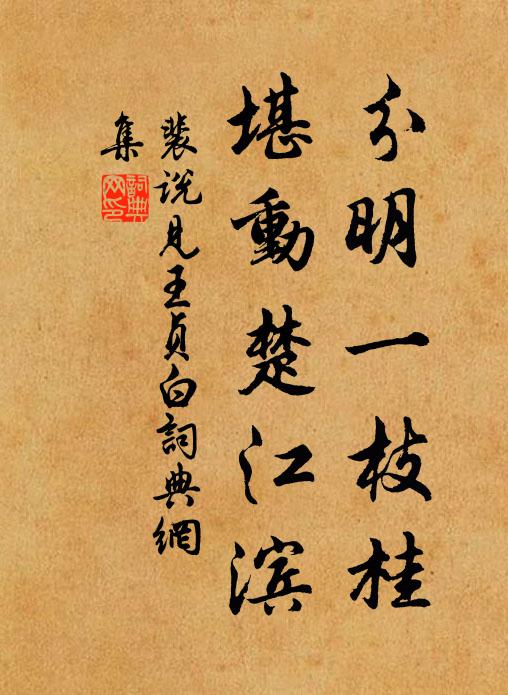 分明一枝桂
堪動楚江滨
裴说見王貞白詞典網
集
詞典网印